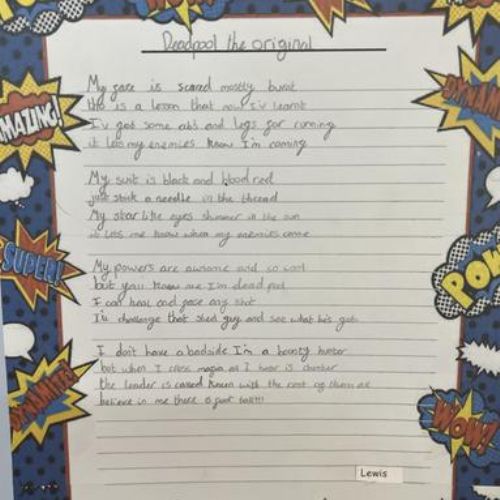 Deadpool the original
My face is scared mostly burnt
this is a leson that now I'v learnt
I'v got some abs and legs for running
it lets my enemies know I'm coming
My suit is black and blood red
just stick a needle in the thread
My star like eyes shimmer in the sun
it lets me know when my enemies come
My powers are awsome and so cool
but you'll know me I'm dead pool
I can heal and face any shot
I'll challenge that sheld guy and see what he's got
I don't have a badside I'm a bounty hunter
but when I cross mafia all I hear is
the leader is called with the rest of them
believe in me there a poor
Lewis
AMAZING!
SUPER!
DYNAMITE!
DYNAMITE
POW
WOW!